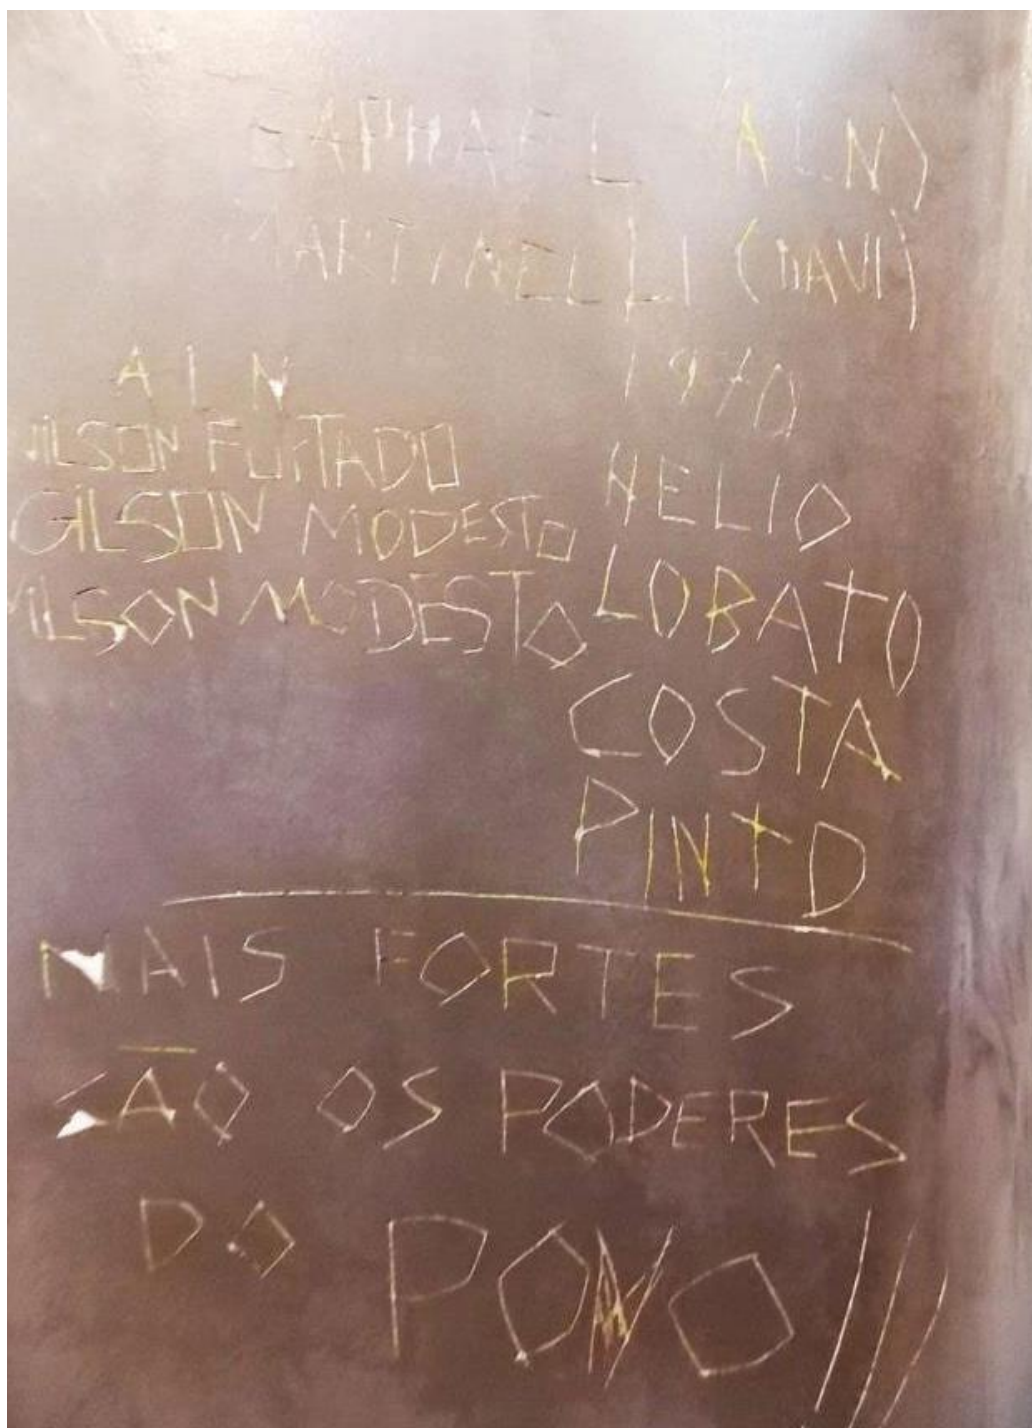 RAPHAEL (ALN)
MARTINELLI (DAVI)
1970
ALN
WILSON FURTADO
GILSON MODESTO
WILSON MODESTO
HELIO
LOBATO
COSTA
PINTO
MAIS FORTES
SÃO OS PODERES
DO POVO //)